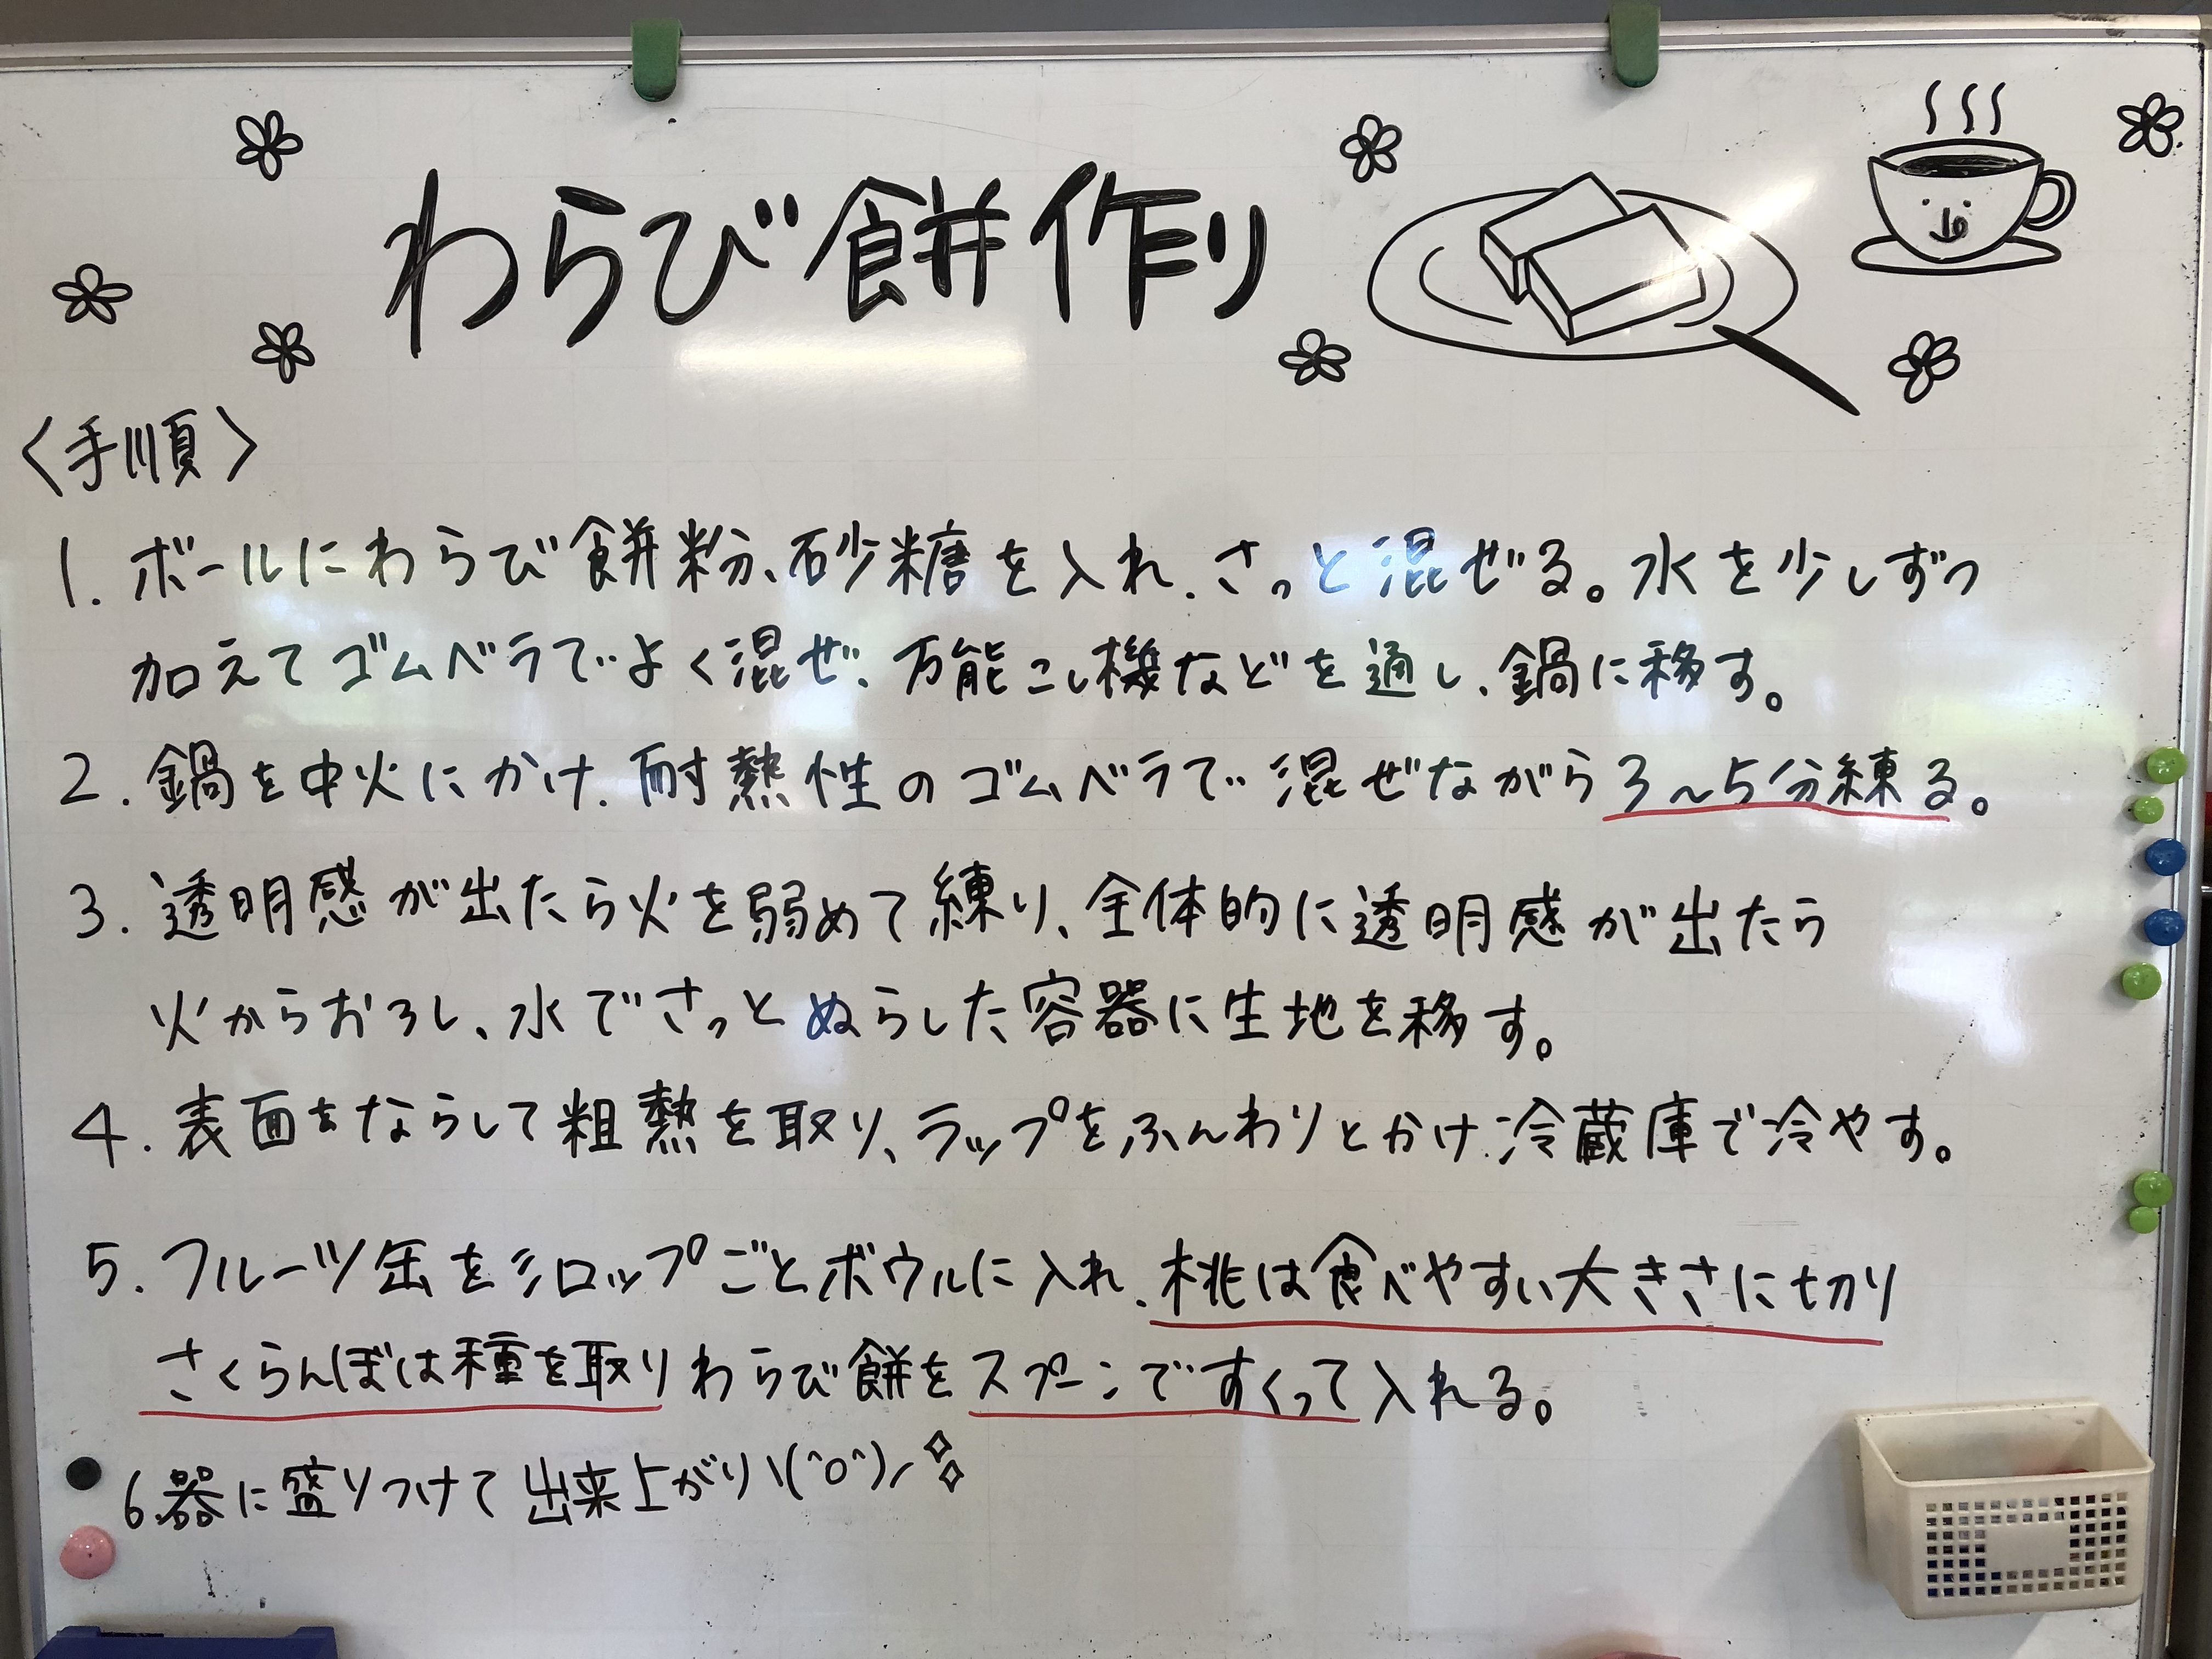 わらび餅作り
〈手順〉
1. ボールにわらび餅粉、砂糖を入れ、さっと混ぜる。水を少しずつ
加えてゴムベラでよく混ぜ、万能こし機などを通し、鍋に移す。
2. 鍋を中火にかけ、耐熱性のゴムベラで混ぜながら3〜5分練る。
3. 透明感が出たら火を弱めて練り、全体的に透明感が出たら
火からおろし、水でさっとぬらした容器に生地を移す。
4. 表面をならして粗熱を取り、ラップをふんわりとかけ、冷蔵庫で冷やす。
5. フルーツ缶をシロップごとボウルに入れ、桃は食べやすい大きさに切り
さくらんぼは種を取りわらび餅をスプーンですくって入れる。
6.器に盛りつけて出来上がり\(^o^)/